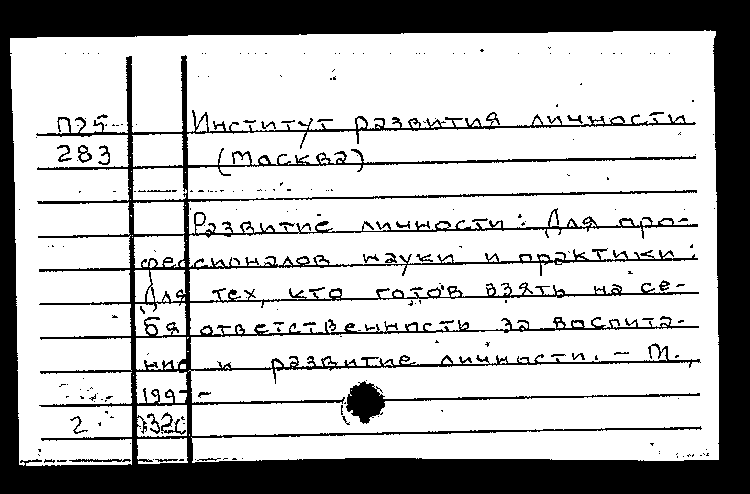 П25 Институт развития личности
283 (Москва)
Развитие личности: Для про-
фессионалов науки и практики:
Для тех, кто готов взять на се-
бя ответственность за воспита-
ние и развитие личности. – М.,
1997–
2